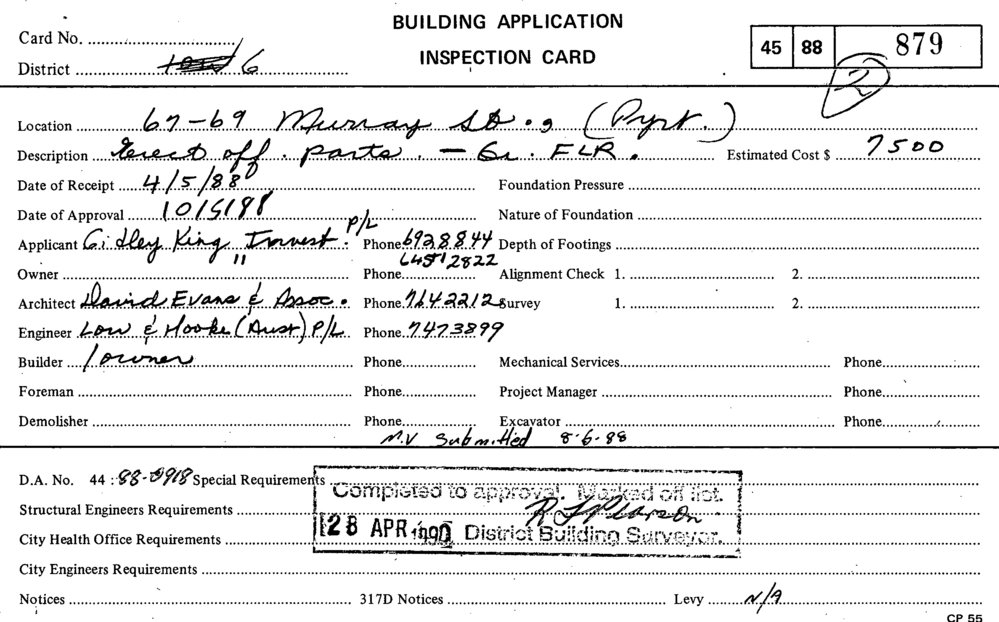 BUILDING APPLICATION
INSPECTION CARD
Card No.
District 6
45 88 879
2
Location 67-69 Murray St., (Pyrt.)
Description Erect off. parts. - Gr. FLR. Estimated Cost $ 7500
Date of Receipt 4/5/88 Foundation Pressure
Date of Approval 10/5/88 Nature of Foundation
Applicant Gidley King Invest. P/L Phone 6928844 Depth of Footings
Owner " Phone Alignment Check 1. 2.
Architect David Evans & Assoc. Phone 7642212 Survey 1. 2.
Engineer Low & Hooke (Aust) P/L Phone 7473899
Builder / owner Phone Mechanical Services Phone
Foreman Phone Project Manager Phone
Demolisher Phone Excavator Phone
M.V Submitted 8-6-88
D.A. No. 44 : 88-0918 Special Requirements
Completed to approval. Marked off list.
Structural Engineers Requirements
R F Pearson
28 APR 1990 District Building Surveyor.
City Health Office Requirements
City Engineers Requirements
Notices 317D Notices Levy N/A
CP 55